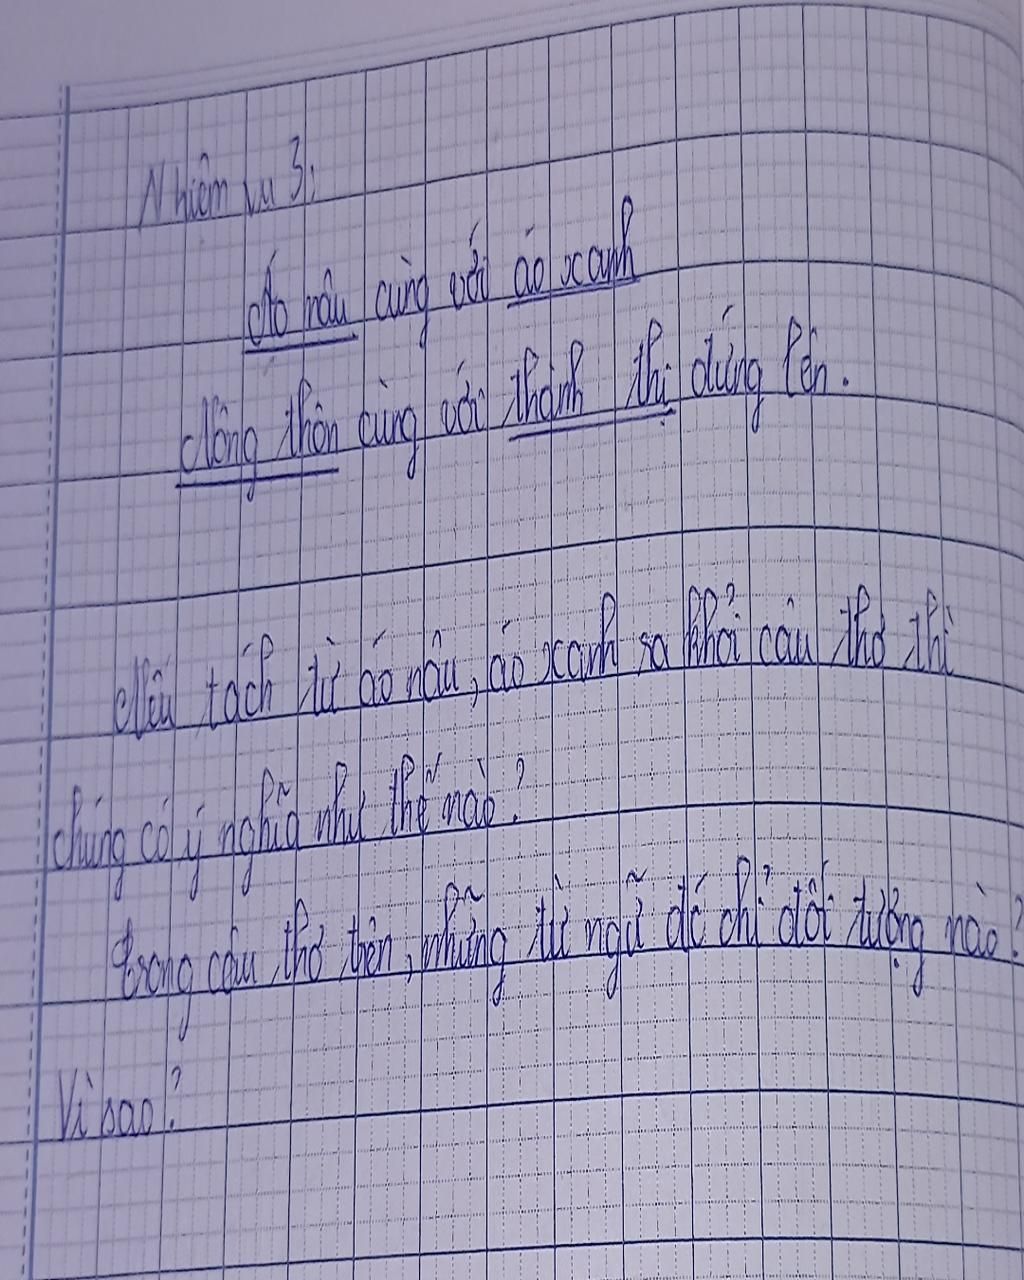 Nhiệm vụ 3:
Áo nâu cùng với áo xanh
Nông thôn cùng với thành thị đứng lên.
Nếu tách từ áo nâu, áo xanh ra khỏi câu thơ thì
chúng có ý nghĩa như thế nào?
Trong câu thơ trên, những từ ngữ đó chỉ đối tượng nào?
Vì sao?